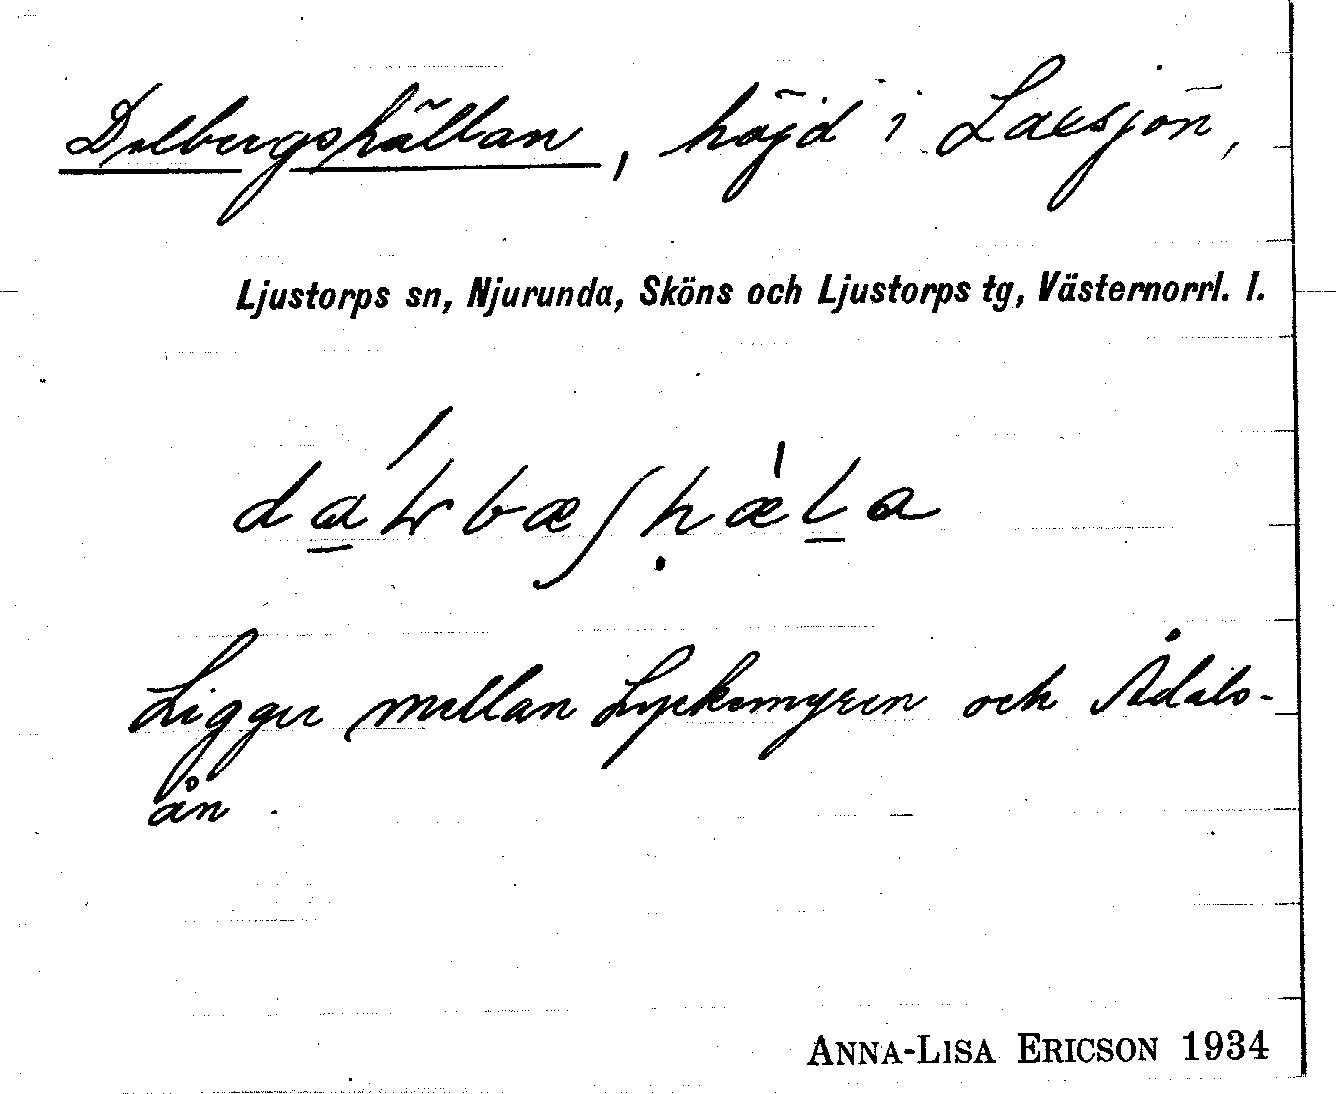 Dalbergshällan, höjd i Laxsjön,
Ljustorps sn, Njurunda, Sköns och Ljustorps tg, Västernorrl. l.
Ligger mellan Lyckomyren och Ådals-
ån.
ANNA-LISA ERICSON 1934